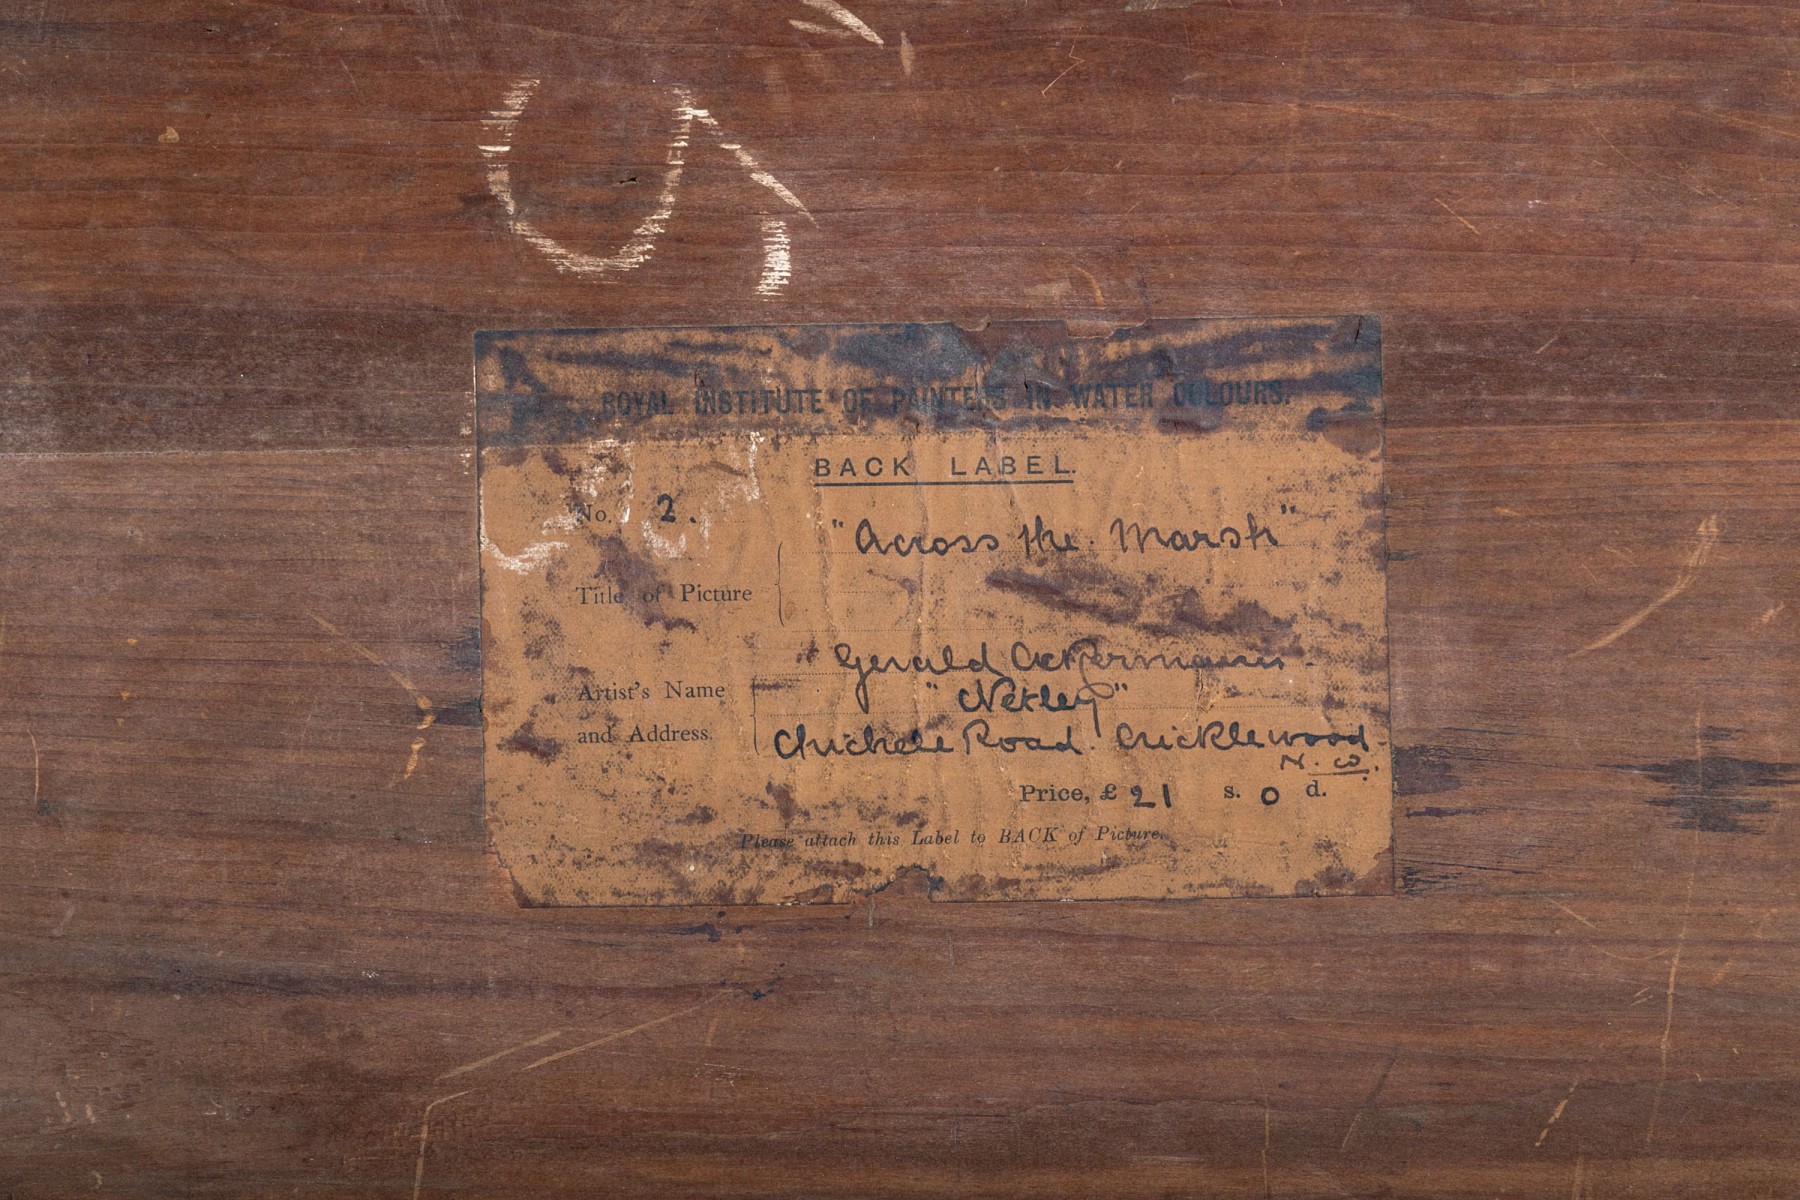 ROYAL INSTITUTE OF PAINTERS IN WATER COLOURS.
BACK LABEL.
No. 2.
"Across the Marsh"
Title of Picture
Gerald Ackermann.
Artist's Name
"Netley"
and Address.
Chichele Road. Cricklewood.
N. W.
Price, £ 21 s. 0 d.
Please attach this Label to BACK of Picture.